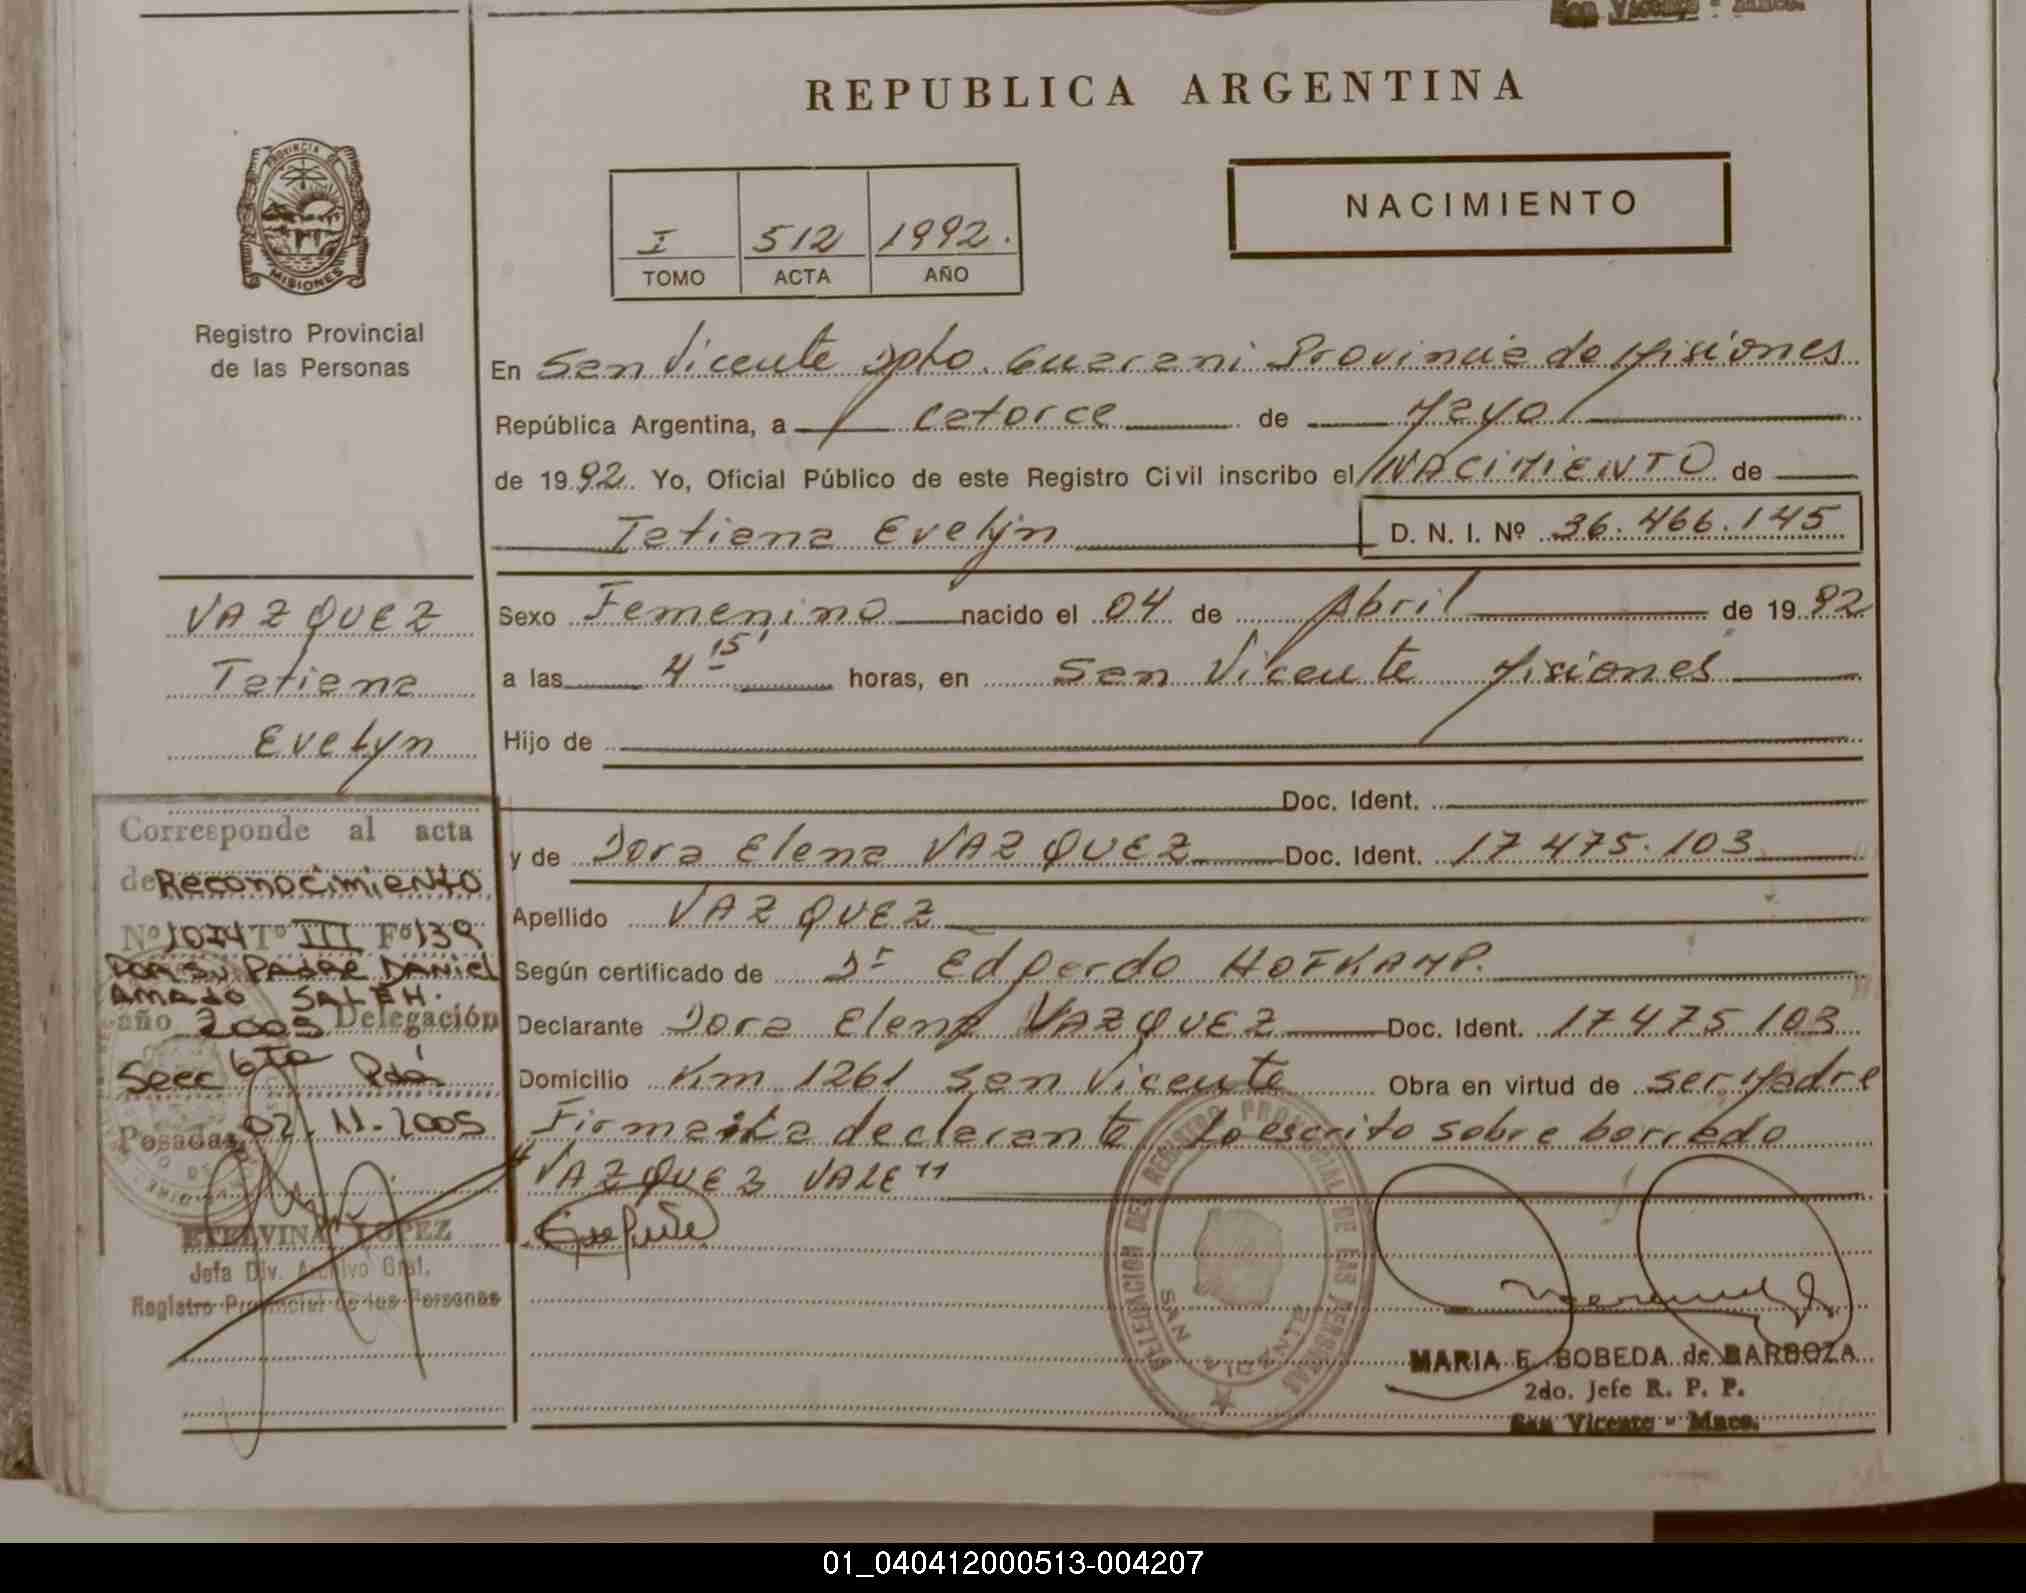 San Vicente - Mnes.
REPUBLICA ARGENTINA
PROVINCIA DE
MISIONES
Registro Provincial
de las Personas
I 512 1992.
TOMO ACTA AÑO
NACIMIENTO
En San Vicente Dpto. Guarani Provincia de Misiones
República Argentina, a catorce de Mayo
de 1992. Yo, Oficial Público de este Registro Civil inscribo el NACIMIENTO de
Tatiana Evelyn D. N. I. Nº 36.466.145
VAZQUEZ
Tatiana
Evelyn
Sexo Femenino nacido el 04 de Abril de 1992
a las 4 15' horas, en San Vicente Misiones
Hijo de
Doc. Ident.
y de Dora Elena VAZQUEZ Doc. Ident. 17 475.103
Apellido VAZQUEZ
Según certificado de Dr Edgardo HOFKAMP.
Declarante Dora Elena VAZQUEZ Doc. Ident. 17 475 103
Domicilio Km 1261 San Vicente Obra en virtud de ser Madre
Firma la declarante Lo escrito sobre borrado
VAZQUEZ VALE"
Corresponde al acta
de Reconocimiento
Nº 1074 Tº III Fº 139
POR SU PADRE DANIEL
AMADO SALEH.
año 2005 Delegación
Secc 6ta Pdas
Posadas, 02.11.2005
ETELVINA LOPEZ
Jefa Div. Archivo Gral.
Registro Provincial de las Personas
DELEGACION DEL REGISTRO PROVINCIAL DE LAS PERSONAS
SAN VICENTE
MARIA E. BOBEDA de BARBOZA
2do. Jefe R. P. P.
San Vicente - Mnes.
01_040412000513-004207